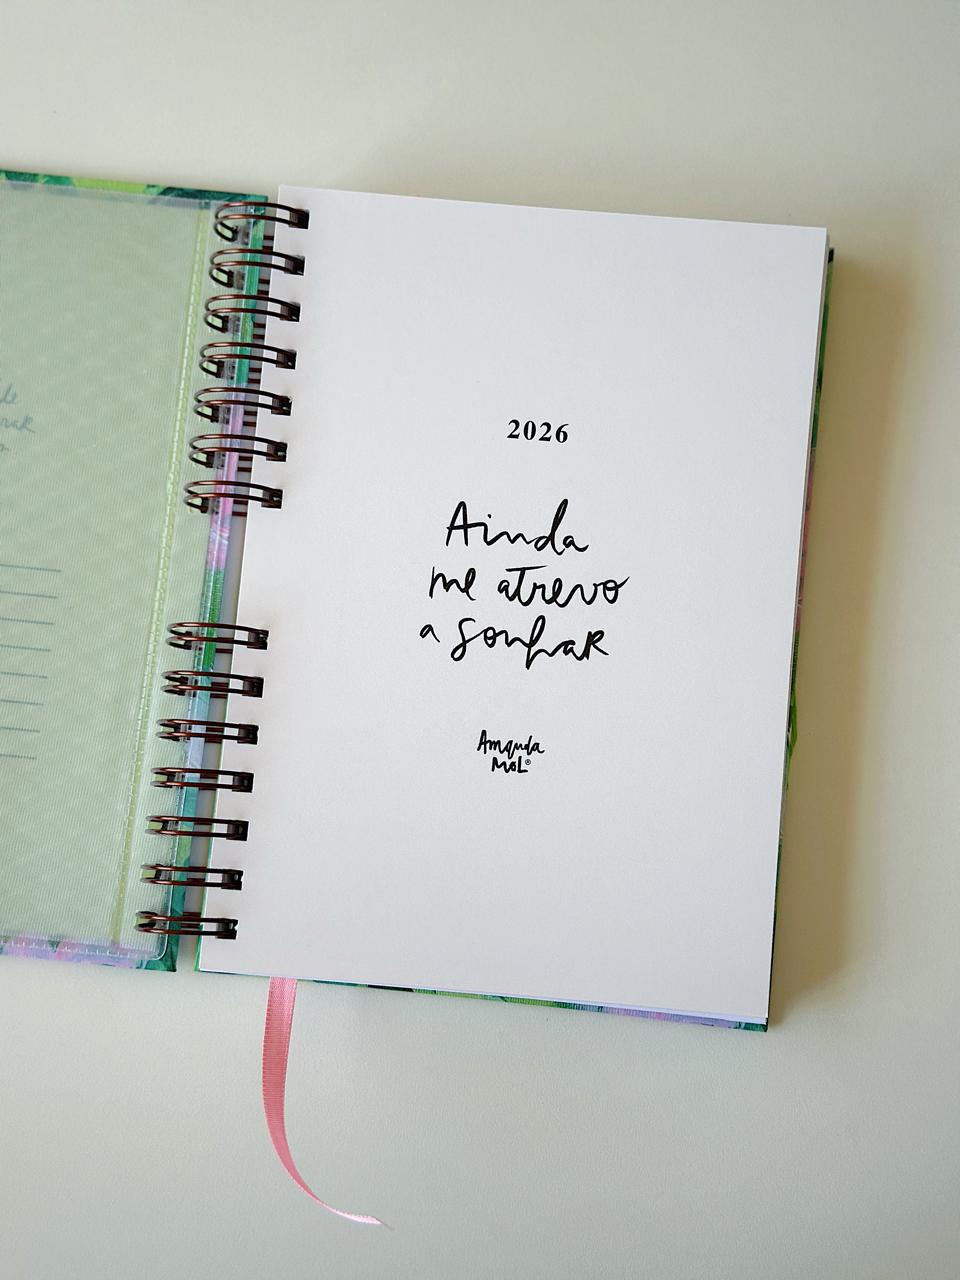 2026
Ainda
me atrevo
a sonhar
Amanda
Mol®